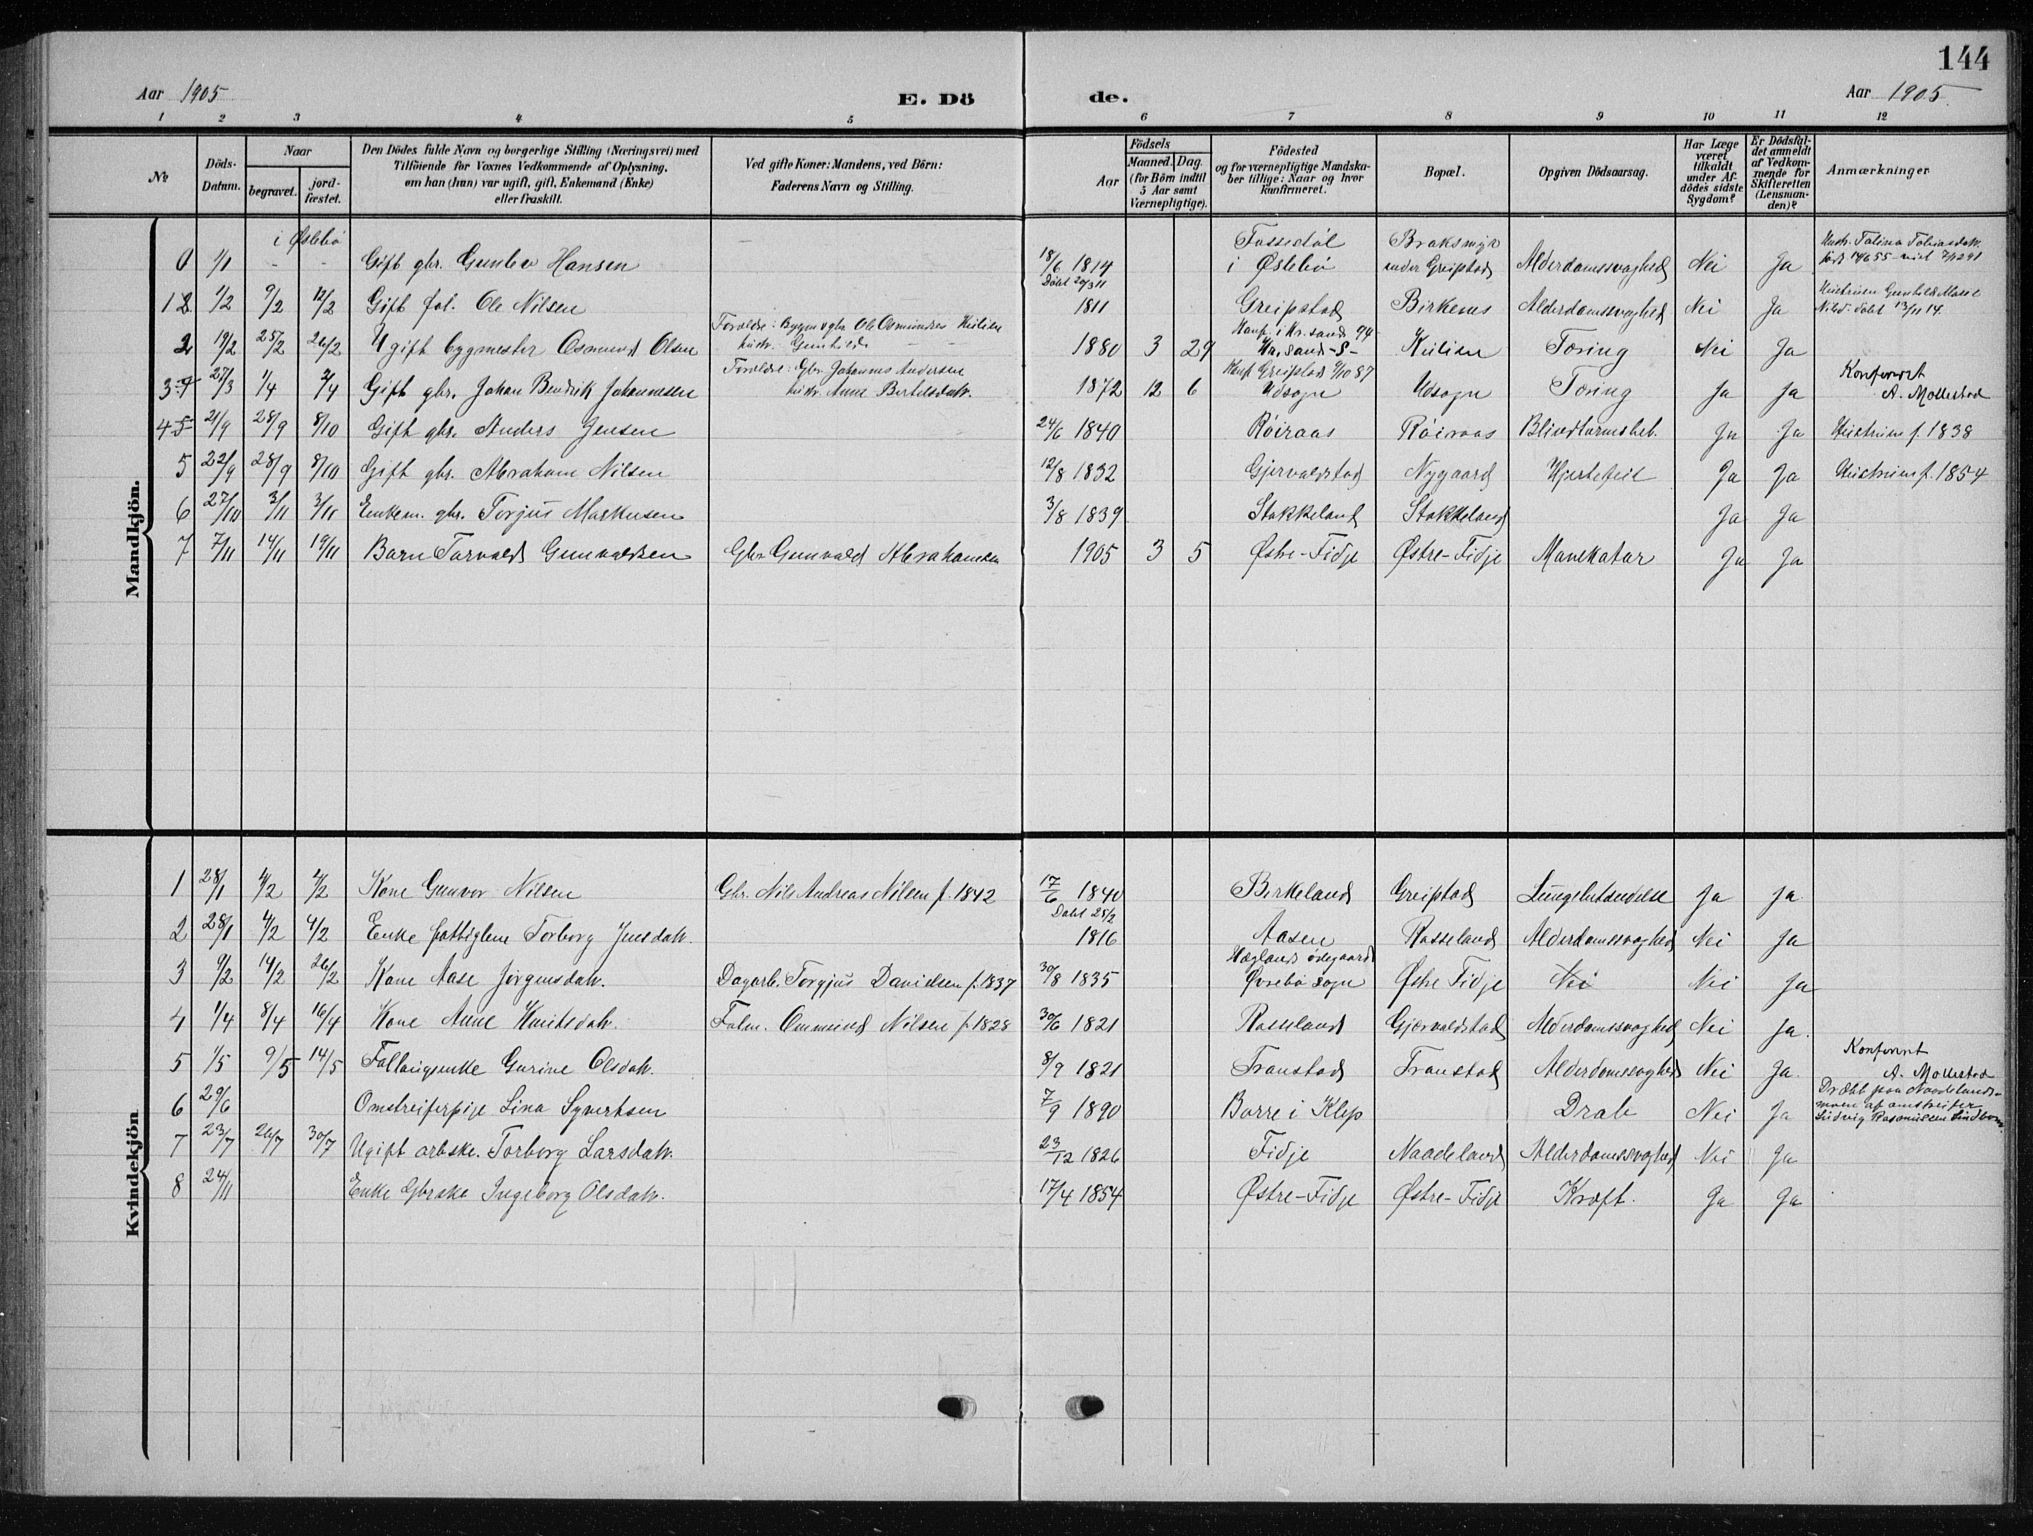 144
Aar 1905 E. Dö de. Aar 1905.
1 2 3 4 5 6 7 8 9 10 11 12
№ Döds-Datum. Naar begravet. jord-fæstet. Den Dödes fulde Navn og borgerlige Stilling (Næringsvei) med Tilföiende for Voxnes Vedkommende af Oplysning, om han (hun) var ugift, gift, Enkemand (Enke) eller fraskilt. Ved gifte Koner: Mandens, ved Börn: Faderens Navn og Stilling. Födsels Aar Maaned. Dag. (for Börn indtil 5 Aar samt Værnepligtige). Födested og for værnepligtige Mandskaber tillige: Naar og hvor konfirmeret. Bopæl. Opgiven Dödsaarsag. Har Læge været tilkaldt under Afdödes sidste Sygdom? Er Dödsfaldet anmeldt af Vedkommende for Skifteretten (Lensmanden)? Anmærkninger
Mandkjön.
i Øslebø Fossedøl Braksmyr Hustr. Talina Tobiasdatr.
0 1/1 - - Gift gbr. Gunlev Hansen 18/6 1814 i Øslebø under Greipstad Alderdomssvaghed Nei Ja
Døbt 20/3 11
1 1/2 9/2 12/2 Gift fol. Ole Nilsen 1811 Greipstad Birkenes Alderdomssvaghed Nei Ja Hustruen Gunhild Marie Nilsd. døbt 13/11 14.
Forældre: Bygm & gbr. Ole Osmundsen Kulien Konf. i Kr.sand 94
2 19/2 25/2 26/2 Ugift bygmester Osmund Olsen hustr. Gunhild - - 1880 3 29 Kr.sand -S- Kulien Tæring Nei Ja
Forældre: Gbr. Johannes Andersen Konf Greipstad 9/10 87 Konferert
3 27/3 1/4 2/4 Gift gbr. Johan Bendrik Johannessen hustr. Anne Bertilsdatr. 1872 12 6 Udsogn Udsogn Tæring Ja Ja A. Mollestad
4 21/9 28/9 8/10 Gift gbr. Anders Jensen 24/6 1840 Røiraas Røiraas Blindtarmsbet. Ja Ja Hustruen f. 1838
5 22/9 28/9 8/10 Gift gbr. Abraham Nilsen 12/8 1832 Gjervaldstad Nygaard Hjertefeil Ja Ja Hustruen f. 1854
6 27/10 3/11 3/11 Enkem. gbr. Torjus Markusen 3/8 1839 Stokkeland Stokkeland Ja Ja
7 7/11 14/11 19/11 Barn Torvald Gunvaldsen Gbr Gunvald Abrahamsen 1905 3 5 Østre-Fidje Østre-Fidje Mavekatar Ja Ja
Kvindekjön
1 28/1 4/2 4/2 Kone Gunvor Nilsen Gbr. Nils Andreas Nilsen f. 1842 17/6 1840 Birkeland Greipstad Lungebetændelse Ja Ja
Døbt 25/2
2 28/1 4/2 4/2 Enke fattiglem Torborg Jensdatr. 1816 Aasen Rosseland Alderdomssvaghed Nei Ja
Hægland ødegaard
3 9/2 14/2 26/2 Kone Aase Jørgensdatr. Dagarb. Torgjus Danielsen f. 1837 30/8 1835 Øvrebø sogn Østre Fidje Nei Nei Ja
4 1/4 8/4 16/4 Kone Anne Knutsdatr. Folm. Ommund Nilsen f. 1828 30/6 1821 Rosseland Gjervaldstad Alderdomssvaghed Nei Ja.
Konferert
5 1/5 9/5 14/5 Follaugsenke Gurine Olsdatr. 8/9 1821 Tronstad Tronstad Alderdomssvaghed Nei Ja. A. Mollestad
6 29/6 Omstreiferpige Lina Syvertsen 7/9 1890 Borre i Klep Drab Nei Ja Dræbt paa Naadelands-moen af omstreifer Ludvig Rasmussen Lindborg
7 23/7 26/7 30/7 Ugift arbske. Torborg Larsdatr. 23/12 1826 Fidje Naadeland Alderdomssvaghed Nei Ja
8 24/11 Enke Gbrske Ingeborg Olsdatr. 17/4 1854 Østre-Fidje Østre-Fidje Kræft. Ja Ja